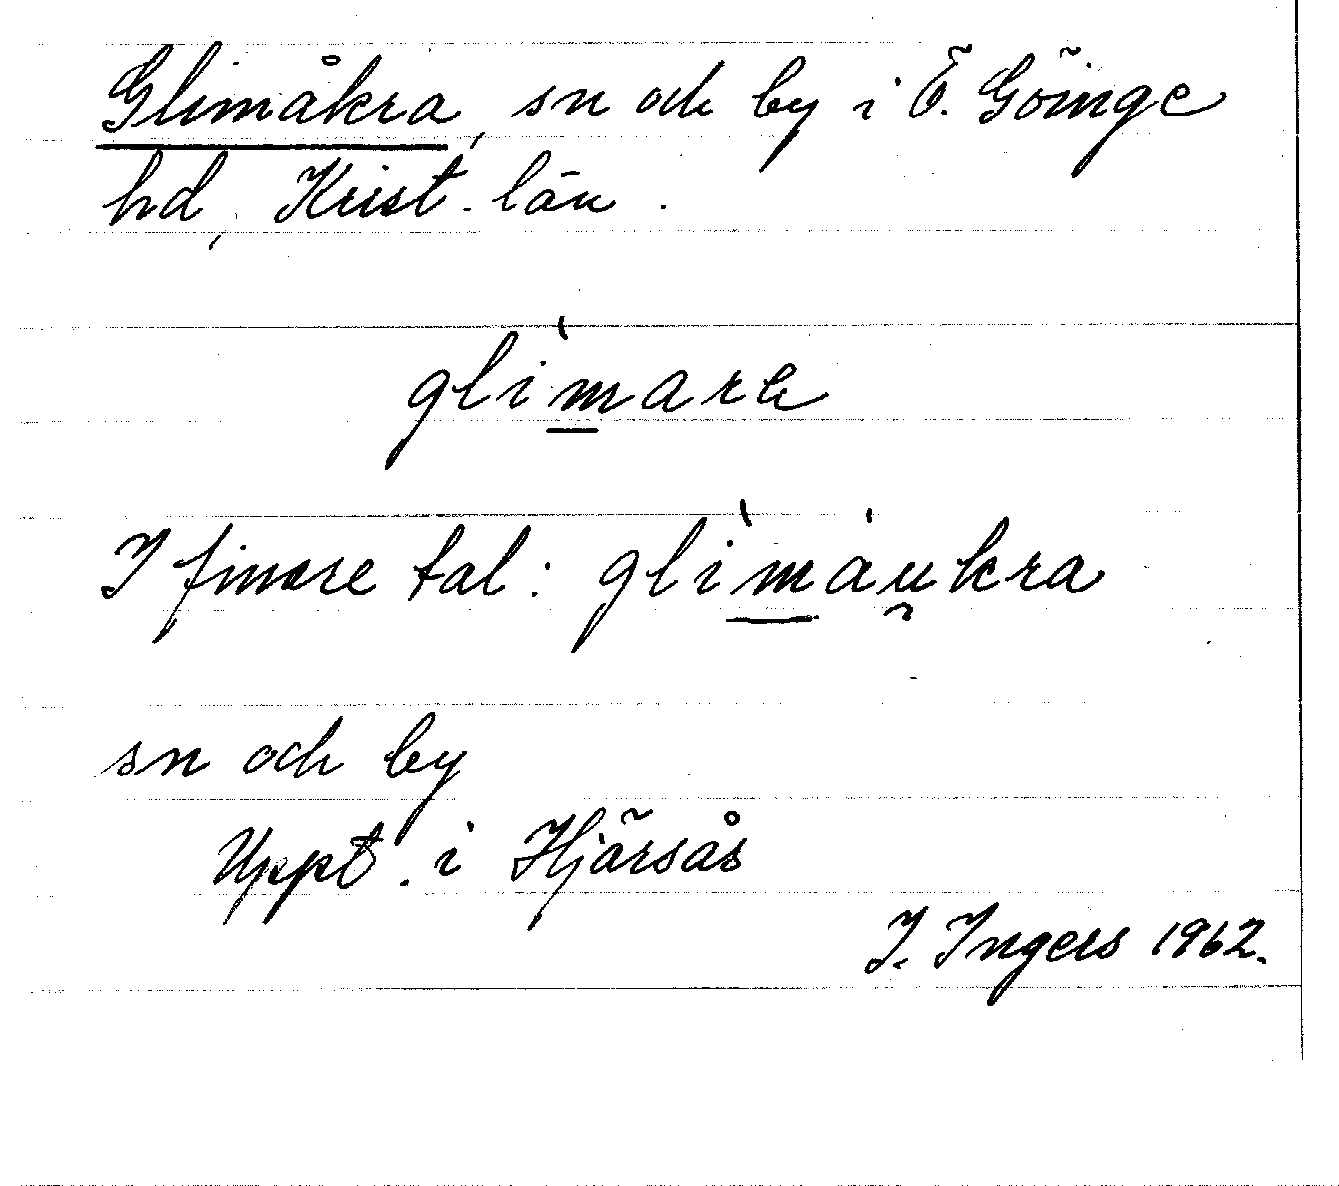 Glimåkra, sn och by i Ö. Göinge
hd, Krist. län.
glìm̲arɐ
I finare tal: glìm̲áu̯kra
sn och by
Uppt. i Hjärsås
I. Ingers 1962.